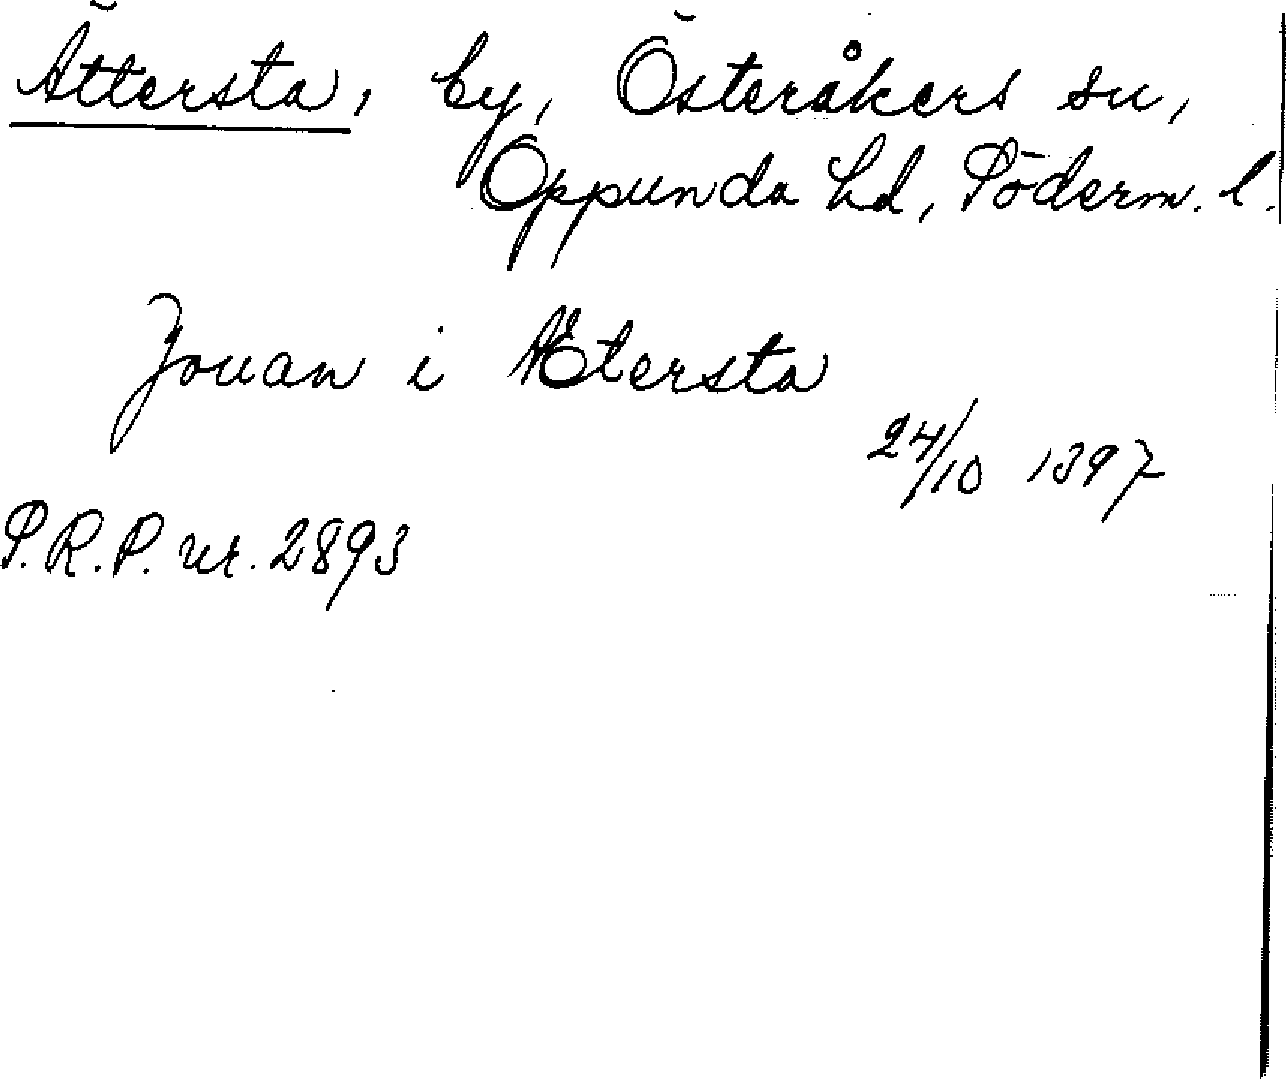 Ättersta, by, Österåkers sn,
Oppunda hd, Söderm. l.
Jouan i Ætersta
24/10 1397
S.R.P. nr. 2893